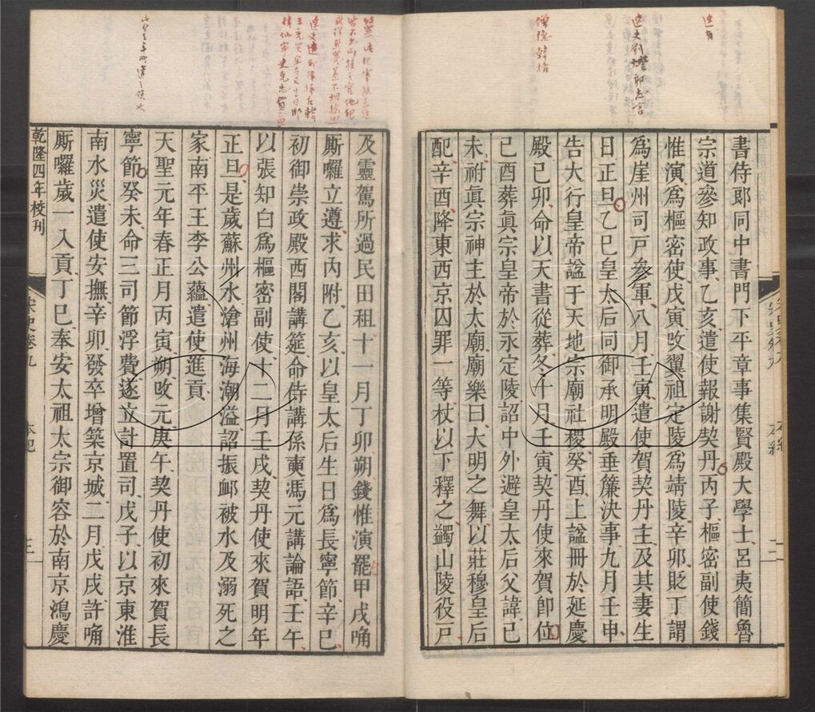 書侍郞同中書門下平章事集賢殿大學士呂夷簡魯
宗道參知政事乙亥遣使報謝契丹丙子樞密副使錢
惟演爲樞密使戊寅攺翼祖定陵爲靖陵辛卯貶丁謂
爲崖州司戸參軍八月壬寅遣使賀契丹主及其妻生
日正旦乙巳皇太后同御承明殿垂簾決事九月壬申
告大行皇帝謚于天地宗廟社稷癸酉上謚冊於延慶
殿己卯命以天書從葬冬十月壬寅契丹使來賀卽位
己酉葬眞宗皇帝於永定陵詔中外避皇太后父諱己
未祔眞宗神主於太廟廟樂曰大明之舞以莊穆皇后
配辛酉降東西京囚罪一等杖以下釋之蠲山陵役戸
及靈駕所過民田租十一月丁卯朔錢惟演罷甲戌唃
厮囉立遵求內附乙亥以皇太后生日爲長寧節辛巳
初御崇政殿西閣講筵命侍講孫奭馮元講論語壬午
以張知白爲樞密副使十二月壬戌契丹使來賀明年
正旦是歲蘇州水滄州海潮溢詔振卹被水及溺死之
家南平王李公蘊遣使進貢
天聖元年春正月丙寅朔攺元庚午契丹使初來賀長
寧節癸未命三司節浮費遂立計置司戊子以京東淮
南水災遣使安撫辛卯發卒增築京城二月戊戌許唃
厮囉歲一入貢丁巳奉安太祖太宗御容於南京鴻慶
乾隆四年校刊
宋史卷九
本紀
三